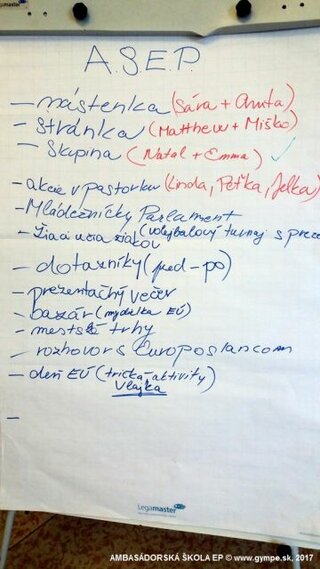 A.S.E.P.
– nástenka (Sára + Anita)
– stránka (Matthew + Miško)
– skupina (Natal + Emma) ✓
– akcie v pastorku (Linda, Peťka, Jelka)
– Mládežnícky Parlament
– Žiaci učia žiakov (volejbalový turnaj s preze
– dotazníky (pred – po)
– prezentačný večer
– bazár (mydielka EÚ)
– mestské trhy
– rozhovor s Europoslancom
– deň EÚ (tričká – aktivity)
vlajka
–
Legamaster
AMBASÁDORSKÁ ŠKOLA EP © www.gympe.sk, 2017